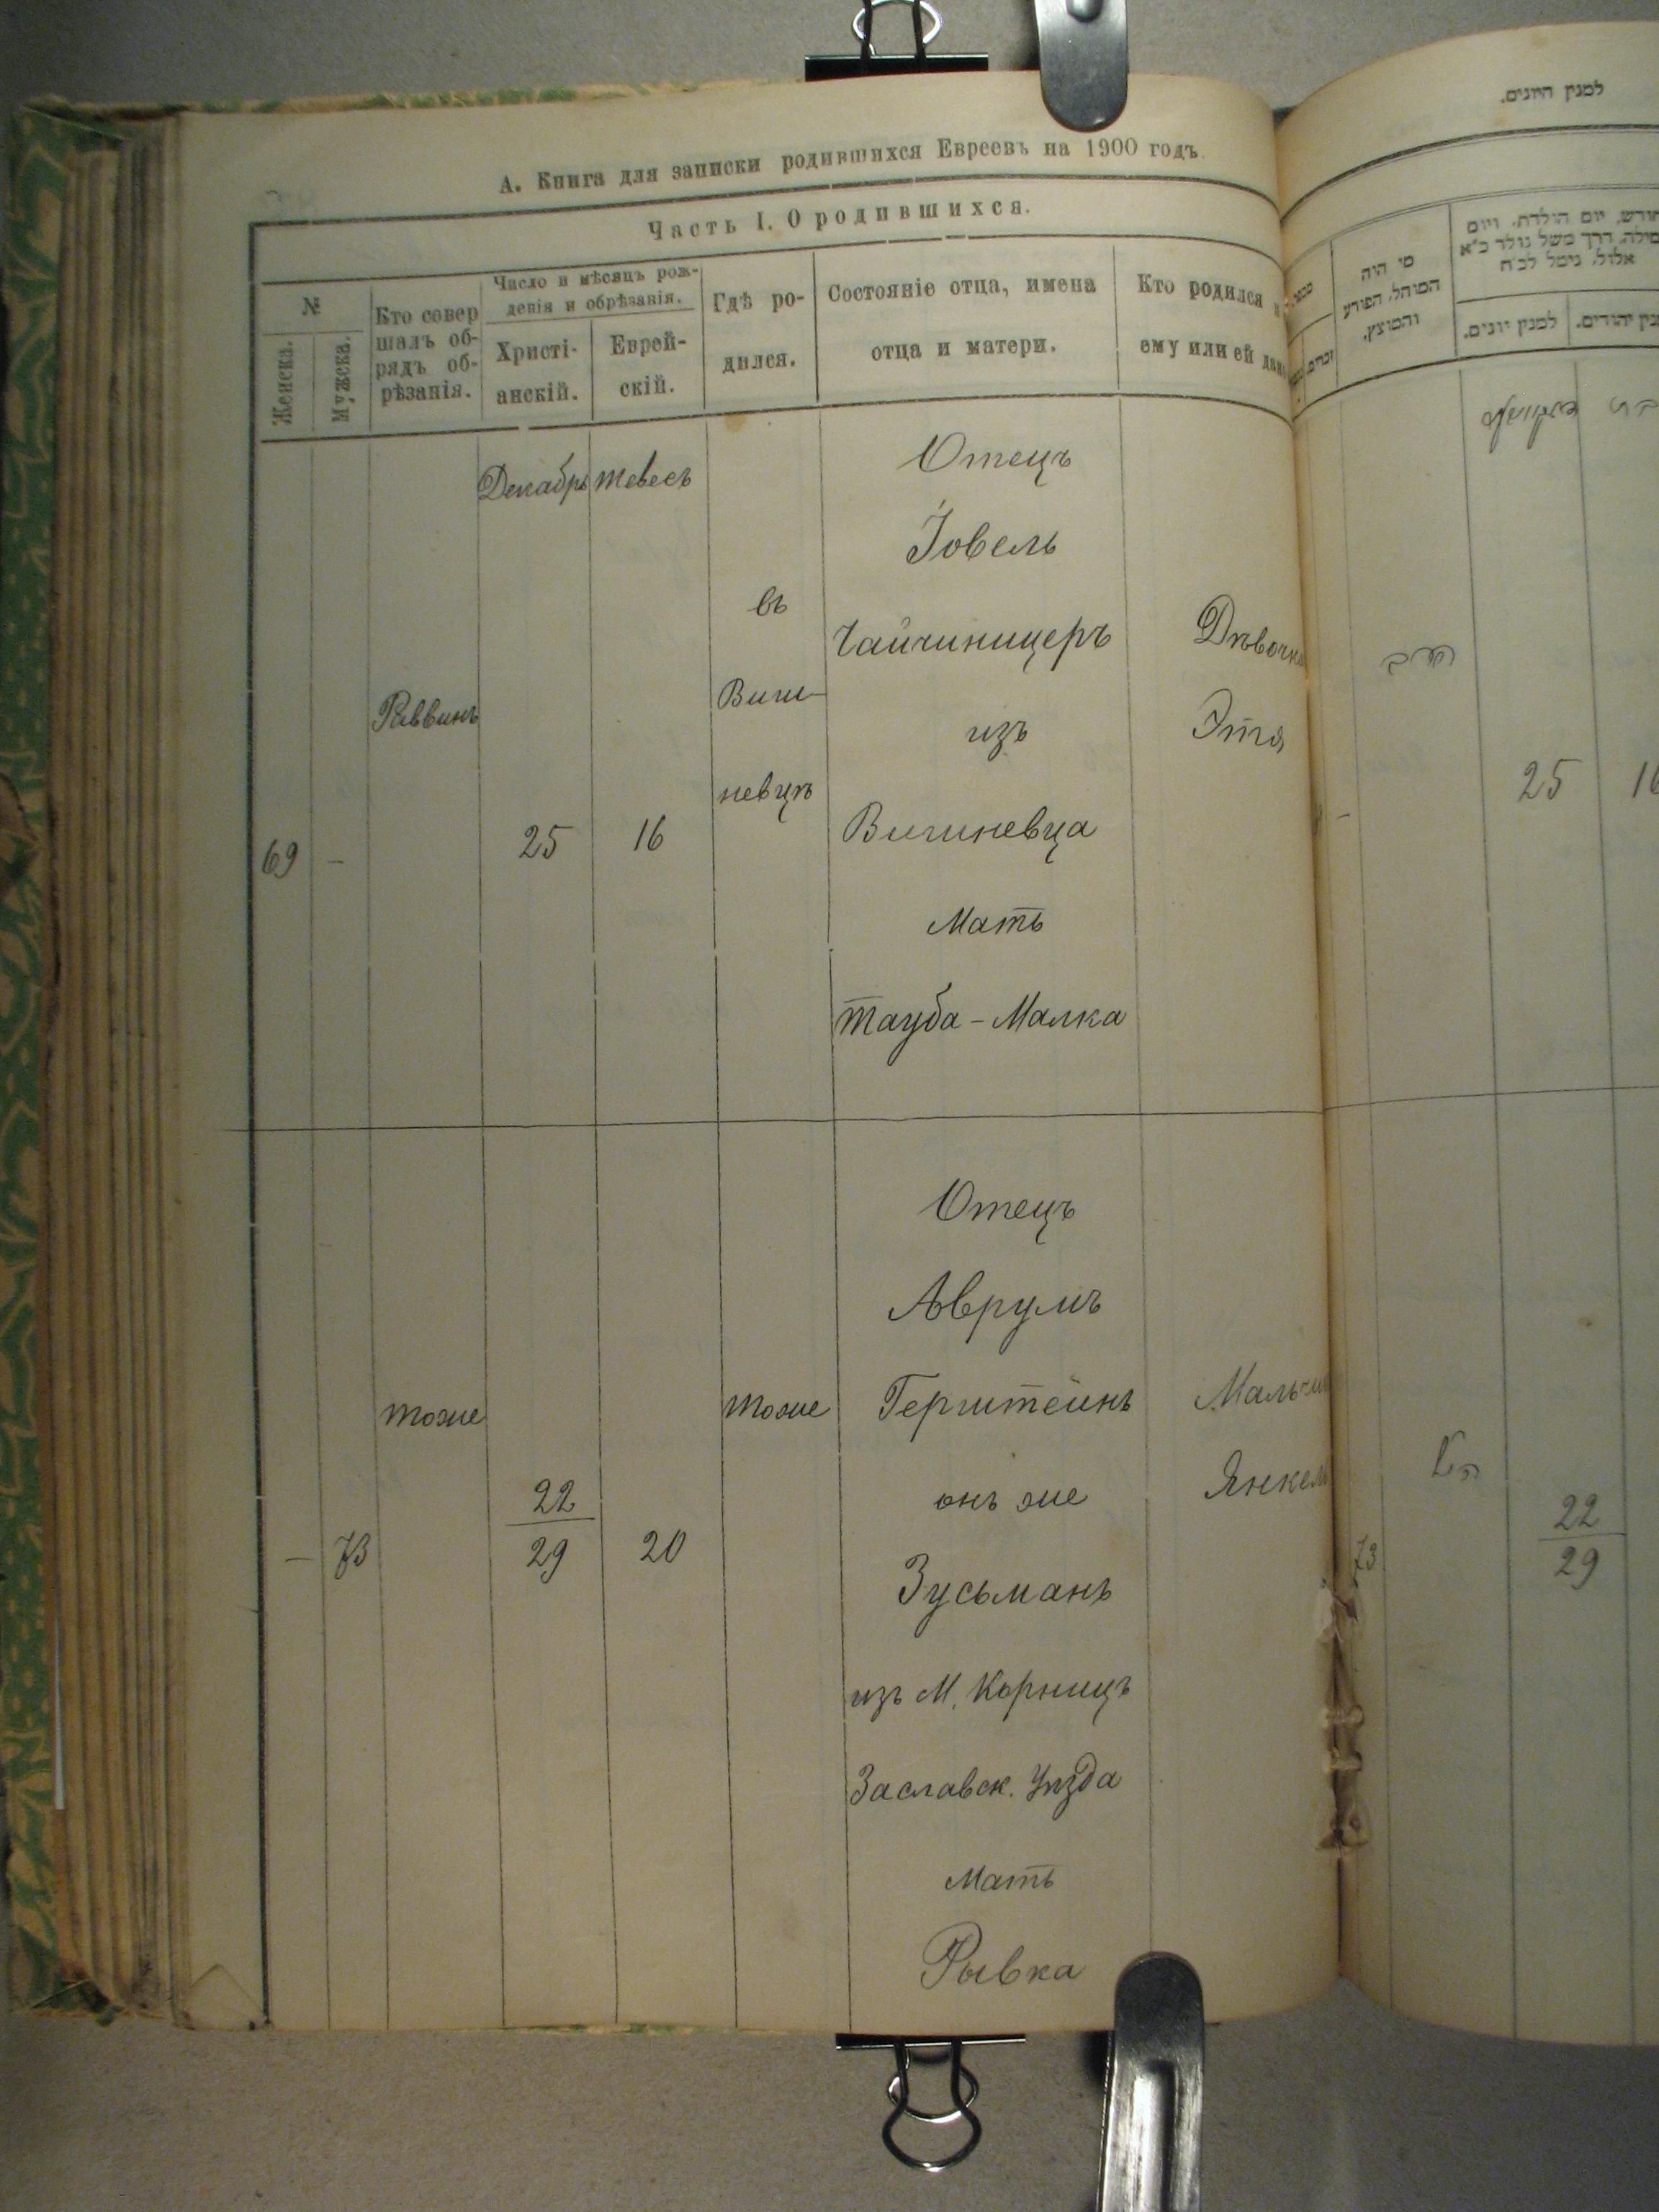 А. Книга для записки родившихся Евреевъ на 1900 годъ.
Часть I. О родившихся.
№
Женска.
Мужска.
Кто совер
шалъ об-
рядъ об-
рѣзанія.
Число и мѣсяцъ рож-
денія и обрѣзанія.
Христі-
анскій.
Еврей-
скій.
Гдѣ ро-
дился.
Состояніе отца, имена
отца и матери.
Кто родился
ему или ей дано
69
–
Раввинъ
Декабрь
25
Тевесъ
16
въ
Виш-
невцѣ
Отецъ
Іовель
Чайчиницеръ
изъ
Вишневца
Мать
Тауба-Малка
Дѣвочка
Этя
–
73
тоже
22
29
20
тоже
Отецъ
Аврумъ
Герштейнъ
онъ же
Зусьманъ
изъ М. Корницъ
Заславск. Уѣзда
Мать
Рывка
Мальчи
Янкель
למנין היונים.
מי היה
המוהל, הפורע
והמוצץ.
חודש, יום הולדת, ויום
מילה, דרך משל נולד כ״א
אלול, נימל לכ״ח
למנין יונים.
למנין יהודים.
הרב
–
25
16
הנ״ל
73
22
29